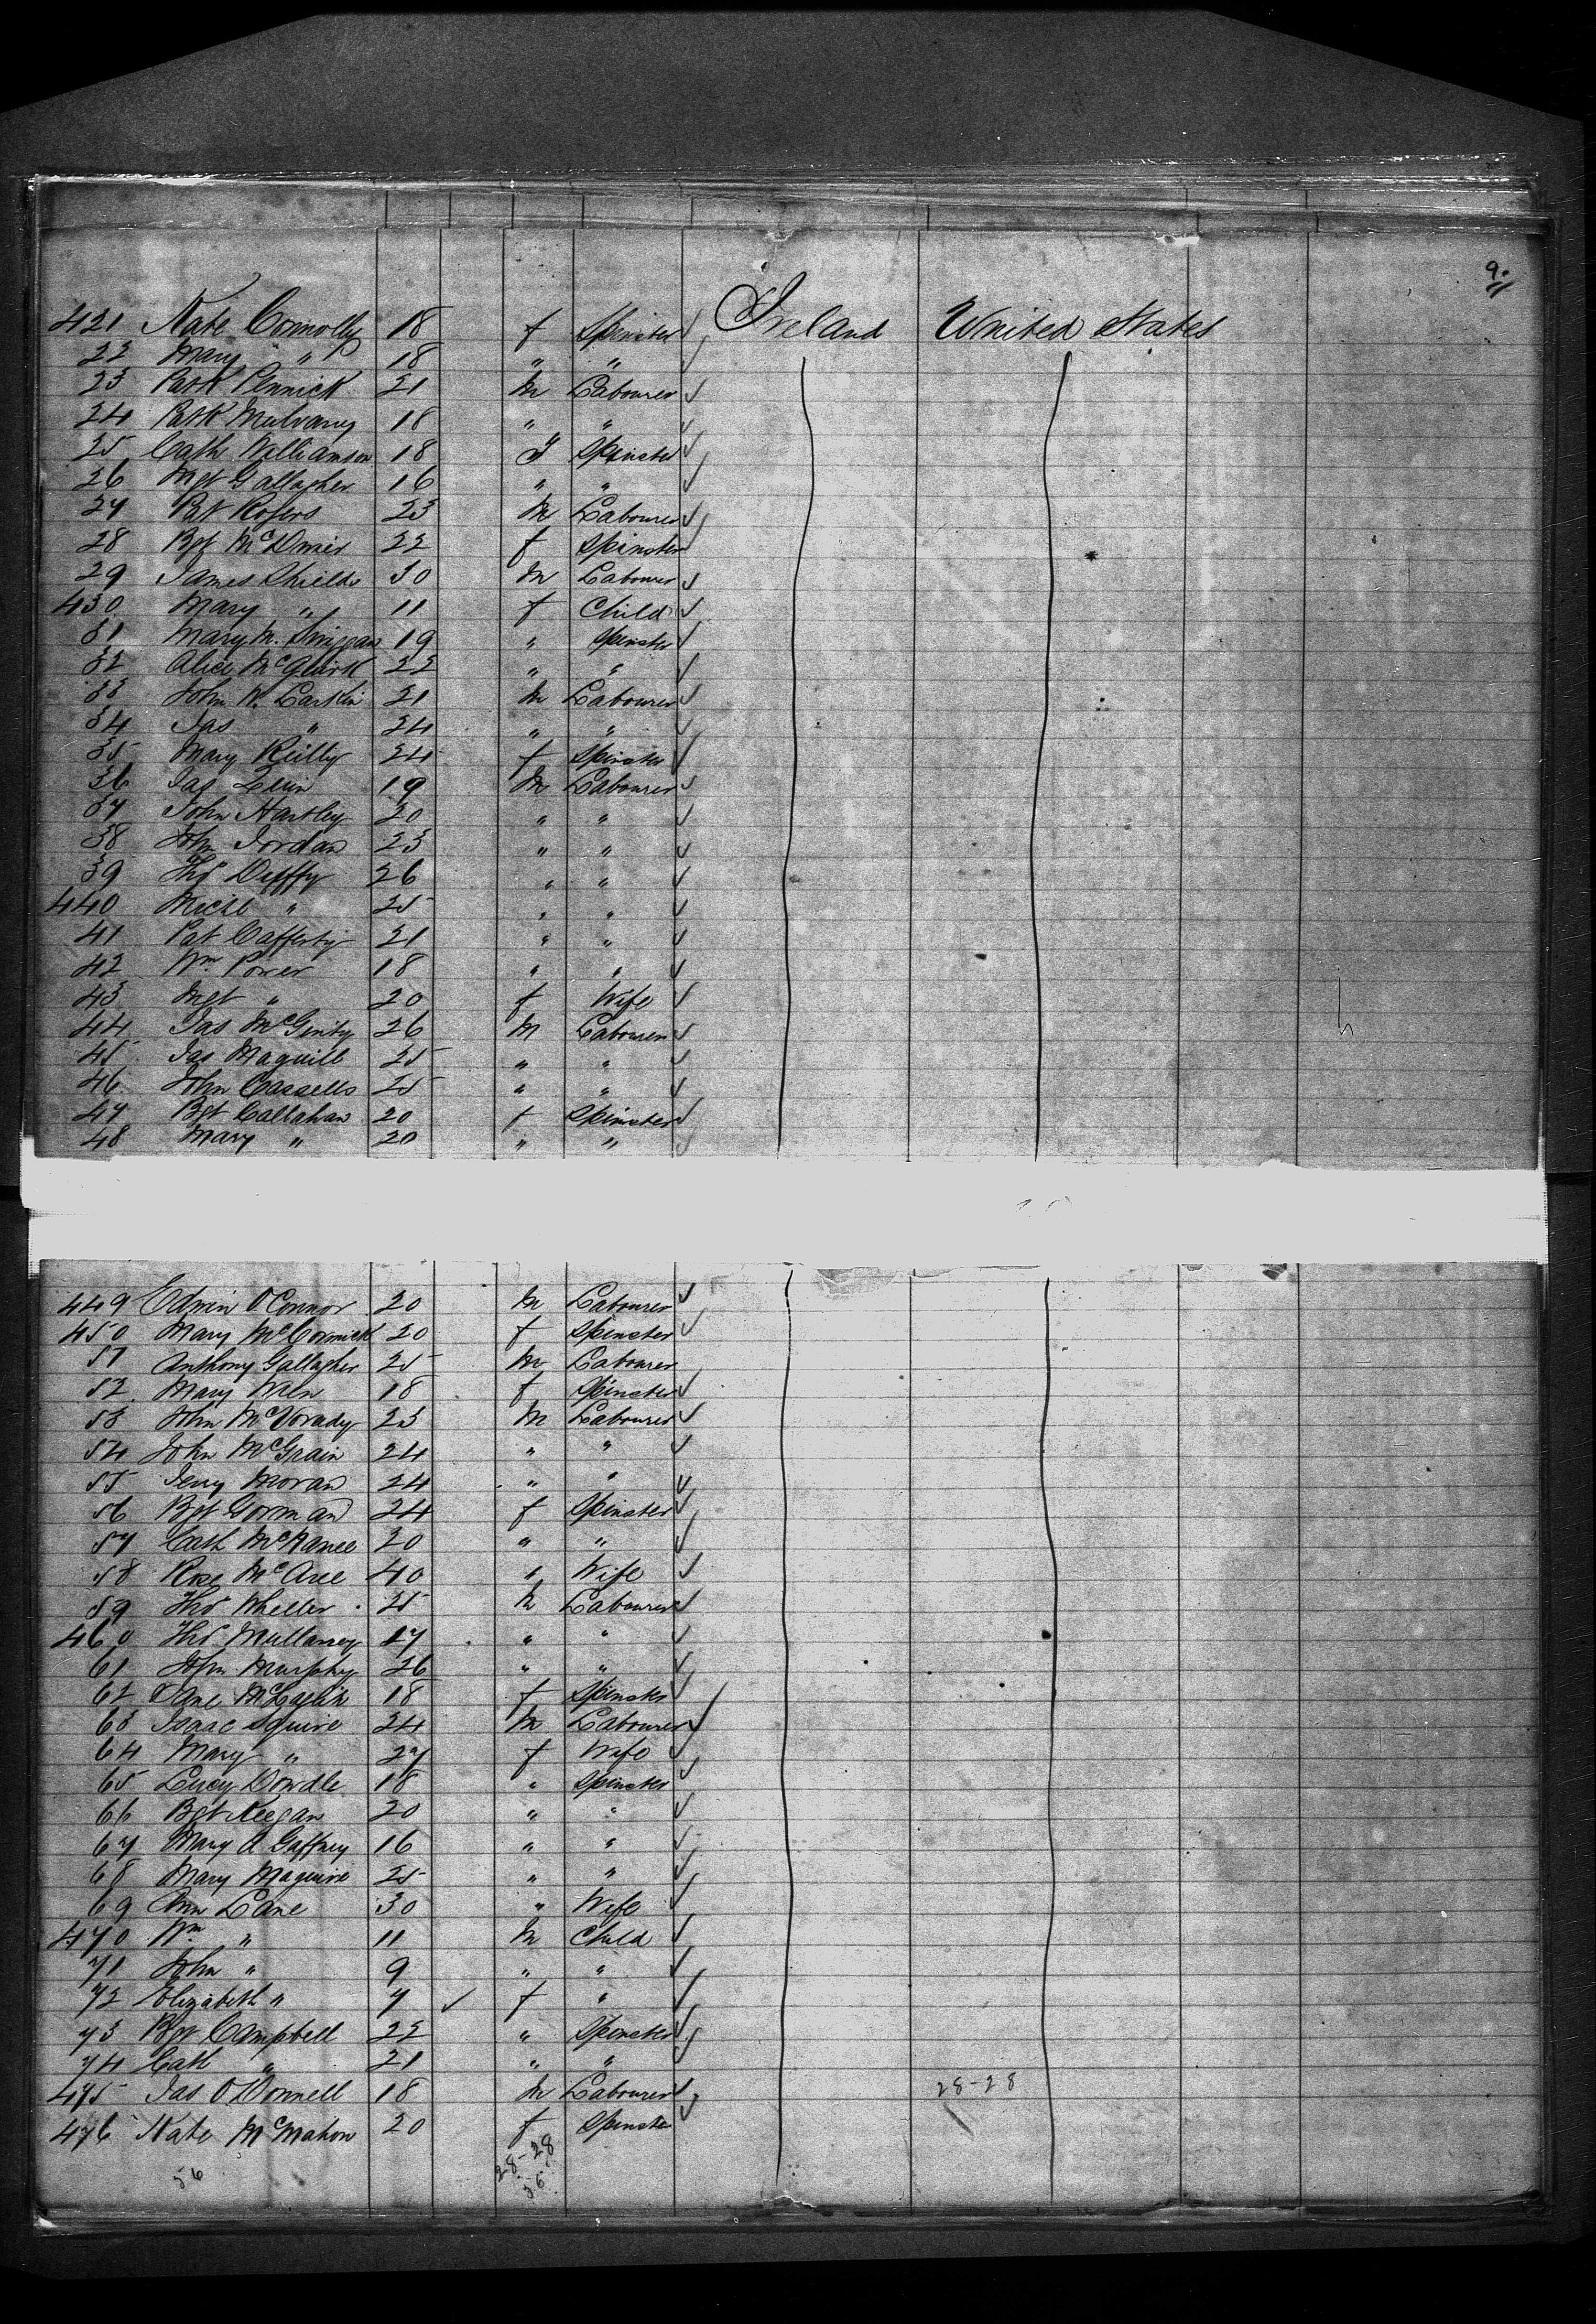 9.
421 Kate Connolly 18 f Spinster Ireland United States
22 Mary " 18 " "
23 Patk Pennick 21 m Labourer
24 Patk Mulvany 18 " "
25 Cath Williamson 18 f Spinster
26 Mgt Gallagher 16 " "
27 Pat Rogers 23 m Labourer
28 Bgt 22 f Spinster
29 James Shields 30 m Labourer
430 Mary " 11 f Child
31 Mary M. 19 " Spinster
32 Alice McQuirk 22 " "
33 John W. Larkin 21 m Labourer
34 Jas " 24 " "
35 Mary Reilly 24 f Spinster
36 Jas 19 m Labourer
37 John Hartley 20 " "
38 John Jordan 23 " "
39 Thos Duffy 26 " "
440 Michl " 25 " "
41 Pat Cafferty 21 " "
42 Wm Power 18 " "
43 Mgt " 20 f Wife
44 Jas McGinity 26 m Labourer
45 Jas Maguill 25 " "
46 John Cassells 25 " "
47 Bgt Callahan 20 f Spinster
48 Mary " 20 " "
449 Edwin O'Connor 20 m Labourer
450 Mary McCormick 20 f Spinster
51 Anthony Gallagher 25 m Labourer
52 Mary 18 f Spinster
53 John 23 m Labourer
54 John McGrain 24 " "
55 Jerry Moran 24 " "
56 Bgt Gorman 24 f Spinster
57 Cath 20 " "
58 Rose McAree 40 " Wife
59 Thos Wheller 25 m Labourer
460 Thos Mullaney 17 " "
61 John Murphy 26 " "
62 Jane 18 f Spinster
63 Isaac Squire 24 m Labourer
64 Mary " 27 f Wife
65 Lucy Dowdle 18 " Spinster
66 Bgt Keegan 20 " "
67 Mary A Gaffney 16 " "
68 Mary Maguire 25 " "
69 Ann Lane 30 " Wife
470 Wm " 11 m Child
71 John " 9 " "
72 Elizabeth " 7 f "
73 Bgt Campbell 22 " Spinster
74 Cath " 21 " "
475 Jas O'Donnell 18 m Labourer 28-28
476 Kate McMahon 20 f Spinster
56 28-28
56